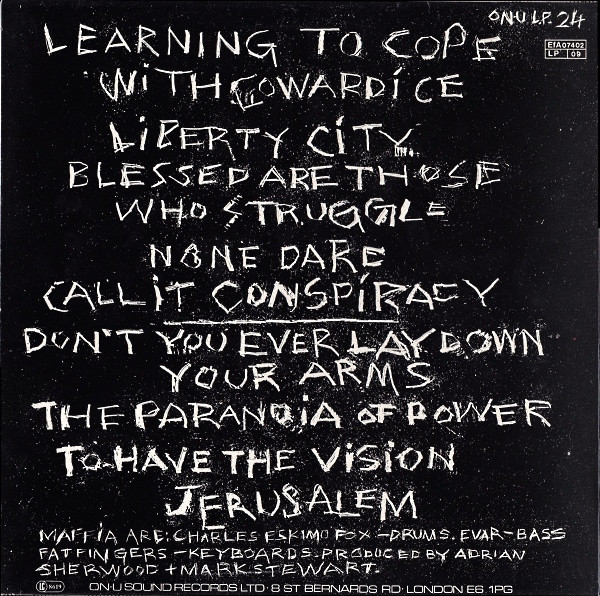 ON-U LP. 24
EFA07402
LP 09
LEARNING TO COPE
WITH COWARDICE
LIBERTY CITY
BLESSED ARE THOSE
WHO STRUGGLE
NONE DARE
CALL IT CONSPIRACY
DON'T YOU EVER LAY DOWN
YOUR ARMS
THE PARANOIA OF POWER
TO HAVE THE VISION
JERUSALEM
MAFFIA ARE: CHARLES ESKIMO FOX - DRUMS. EVAR - BASS
FATFINGERS - KEYBOARDS. PRODUCED BY ADRIAN
SHERWOOD + MARK STEWART.
ON-U SOUND RECORDS LTD · 8 ST BERNARDS RD · LONDON E6 1PG